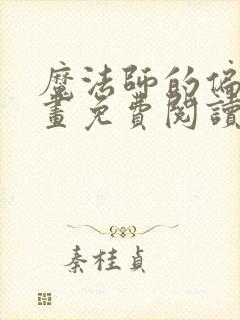 魔法師的偏
畫免費閱讀
秦桂貞